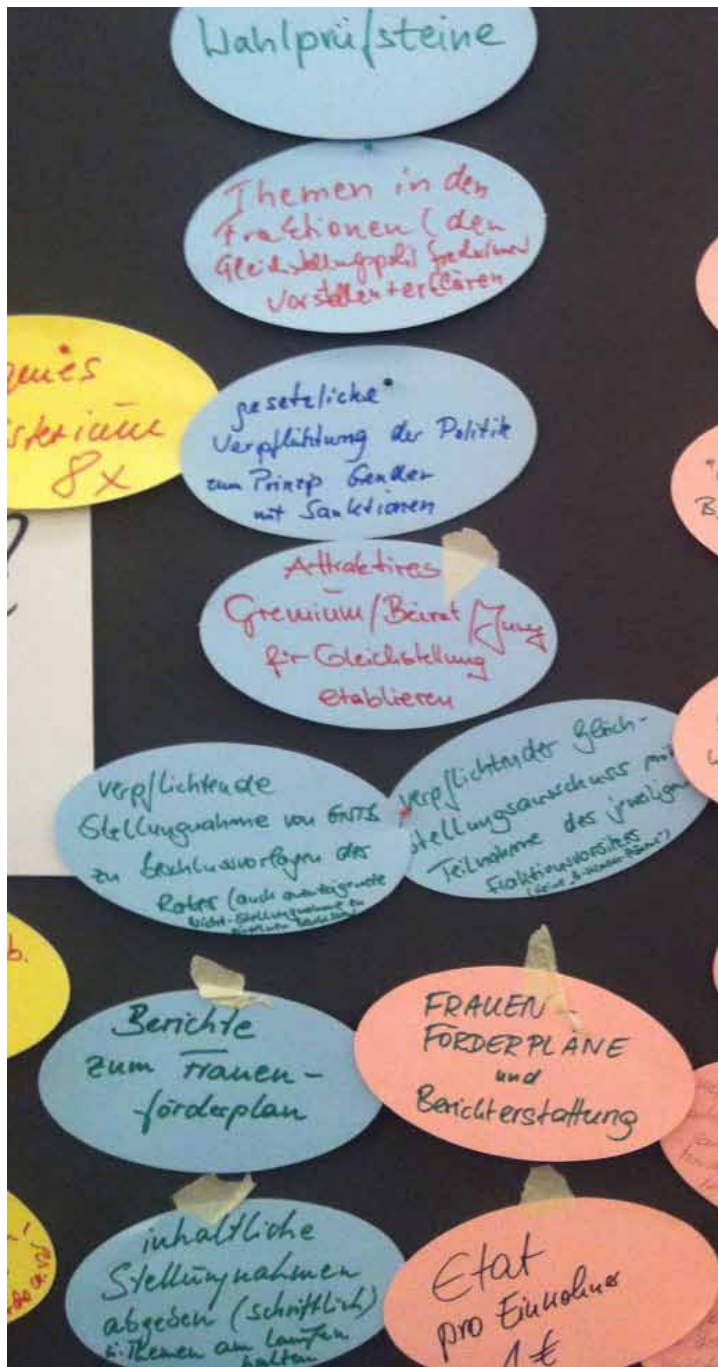 Wahlprüfsteine
Themen in den
Fraktionen (den
Gleichstellungspolit
vorstellen + erklären
isterium
8x
gesetzliche
Verpflichtung der Politik
zum Prinzip Gender
mit Sanktionen
Attraktives
Gremium/Beirat/Jury
für Gleichstellung
etablieren
verpflichtende
Stellungnahme von
zu Beschlussvorlagen des
Rates (auch
verpflichtender Gleich-
stellungsausschuss mit
Teilnahme des jeweiligen
Fraktionsvorsitzes
Berichte
zum Frauen-
förderplan
FRAUEN-
FÖRDERPLÄNE
und
Berichterstattung
inhaltliche
Stellungnahmen
abgeben (schriftlich)
Themen am laufen
halten
Etat
pro Einwohner
1 €